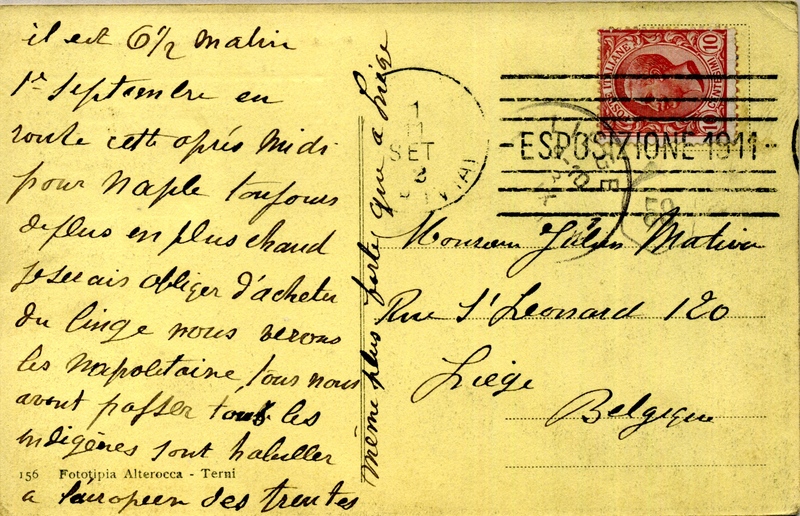 il est 6½ matin
1er Septembre en
route cette après midi
pour Naple toujours
de plus en plus chaud
Je serais obliger d'acheter
du linge nous verons
les Napolitaine, tous nous
avont passer tous les
indigènes sont habiller
156 Fototipia Alterocca - Terni
a l'européen des trentes
même plus fortes que a Liège
POSTE ITALIANE
CENTESIMI
10
10
1
11
SET
8
-ESPOSIZIONE 1911-
Monsieur Julien Mativa
Rue St Leonard 120
Liége
Belgique